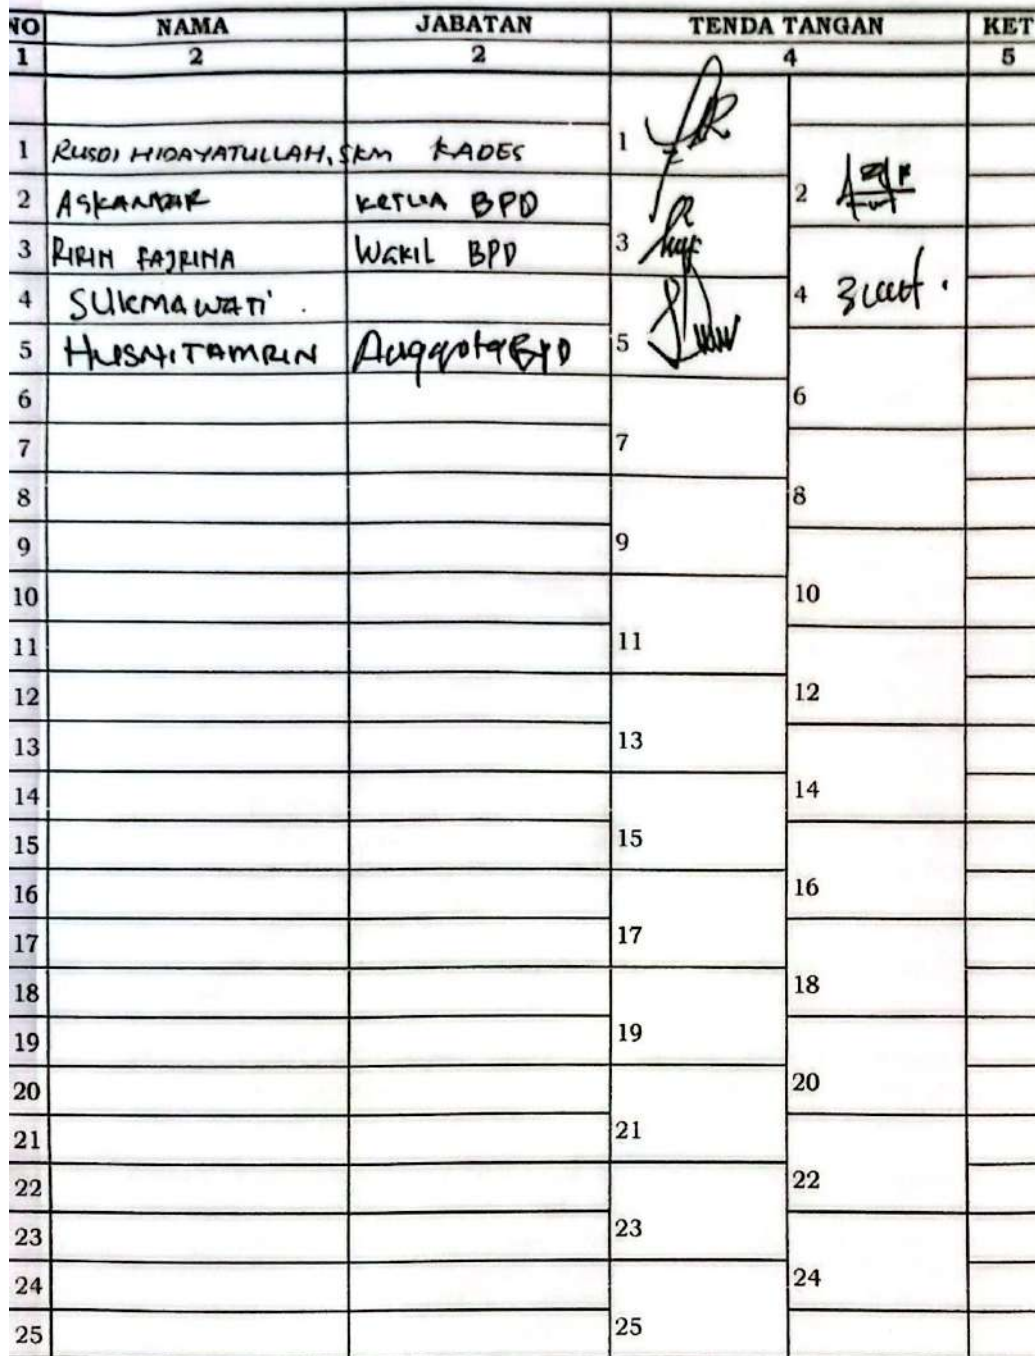 NO NAMA JABATAN TENDA TANGAN KET
1 2 2 4 5
1 RUSDI HIDAYATULLAH, SKM KADES 1
2 ASKANDAR KETUA BPD 2
3 RIRIN FAJRINA WAKIL BPD 3
4 SUKMAWATI 4
5 HUSNITAMRIN Anggota BPD 5
6 6
7 7
8 8
9 9
10 10
11 11
12 12
13 13
14 14
15 15
16 16
17 17
18 18
19 19
20 20
21 21
22 22
23 23
24 24
25 25